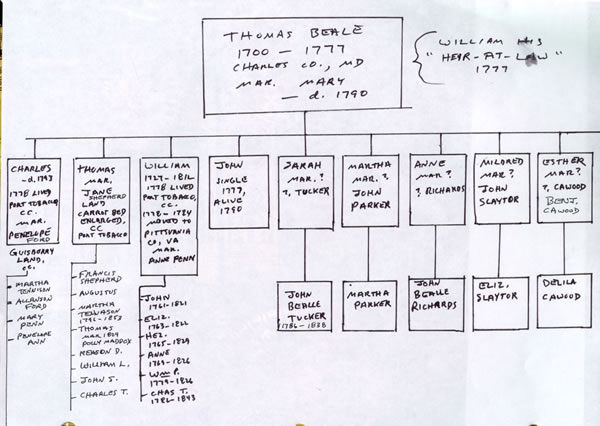 THOMAS BEALE
1700 – 1777
CHARLES CO., MD
MAR. MARY
– d. 1790
WILLIAM HIS
"HEIR-AT-LAW"
1777
CHARLES
-d. 1793
1778 LIVED
PORT TOBACCO,
CC.
MAR.
PENELOPE
FORD
GUISBERRY
LAND,
CC.
MARTHA
TENNISON
FORD
MARY
PENN
PENELOPE
ANN
THOMAS
MAR.
JANE
SHEPHERD
LAND
CARROT BED
ENLARGED,
CC
PORT TOBACCO
FRANCIS
SHEPHERD
AUGUSTUS
MARTHA
TENNASON
THOMAS
MAR. 1829
POLLY MADDOX
D.
WILLIAM L.
JOHN S.
CHARLES T.
WILLIAM
1727-1812
1778 LIVED
PORT TOBACCO,
CC.
1778 – 1784
MOVED TO
PITTSVANIA
CO, VA
MAR.
ANNE PENN
JOHN
1761-1821
ELIZ.
1763-1822
HEZ.
1765-1829
ANNE
1769-1826
WM P.
1779-1826
CHAS T.
1782-1843
JOHN
SINGLE
1777,
ALIVE
1790
SARAH
MAR. ?
?, TUCKER
JOHN
BEALLE
TUCKER
1786-1838
MARTHA
MAR. ?
JOHN
PARKER
MARTHA
PARKER
ANNE
MAR?
? RICHARDS
JOHN
BEALLE
RICHARDS
MILDRED
MAR?
JOHN
SLAYTOR
ELIZ.
SLAYTOR
ESTHER
MAR?
?, CAWOOD
BENJ.
CAWOOD
DELILA
CAWOOD